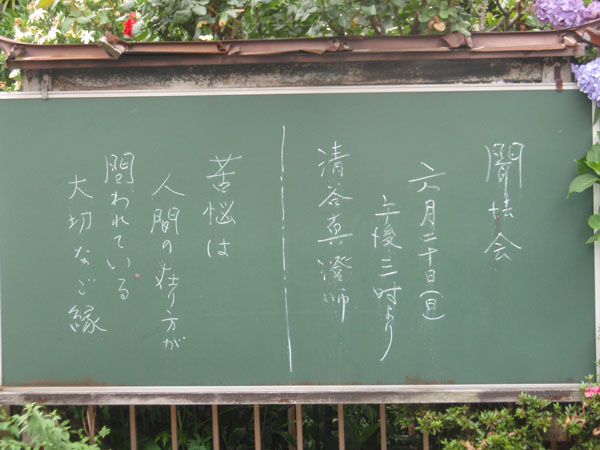 聞法会
六月二十日(日)
午後三時より
清谷真澄師
苦悩は
人間の在り方が
問われている
大切なご縁